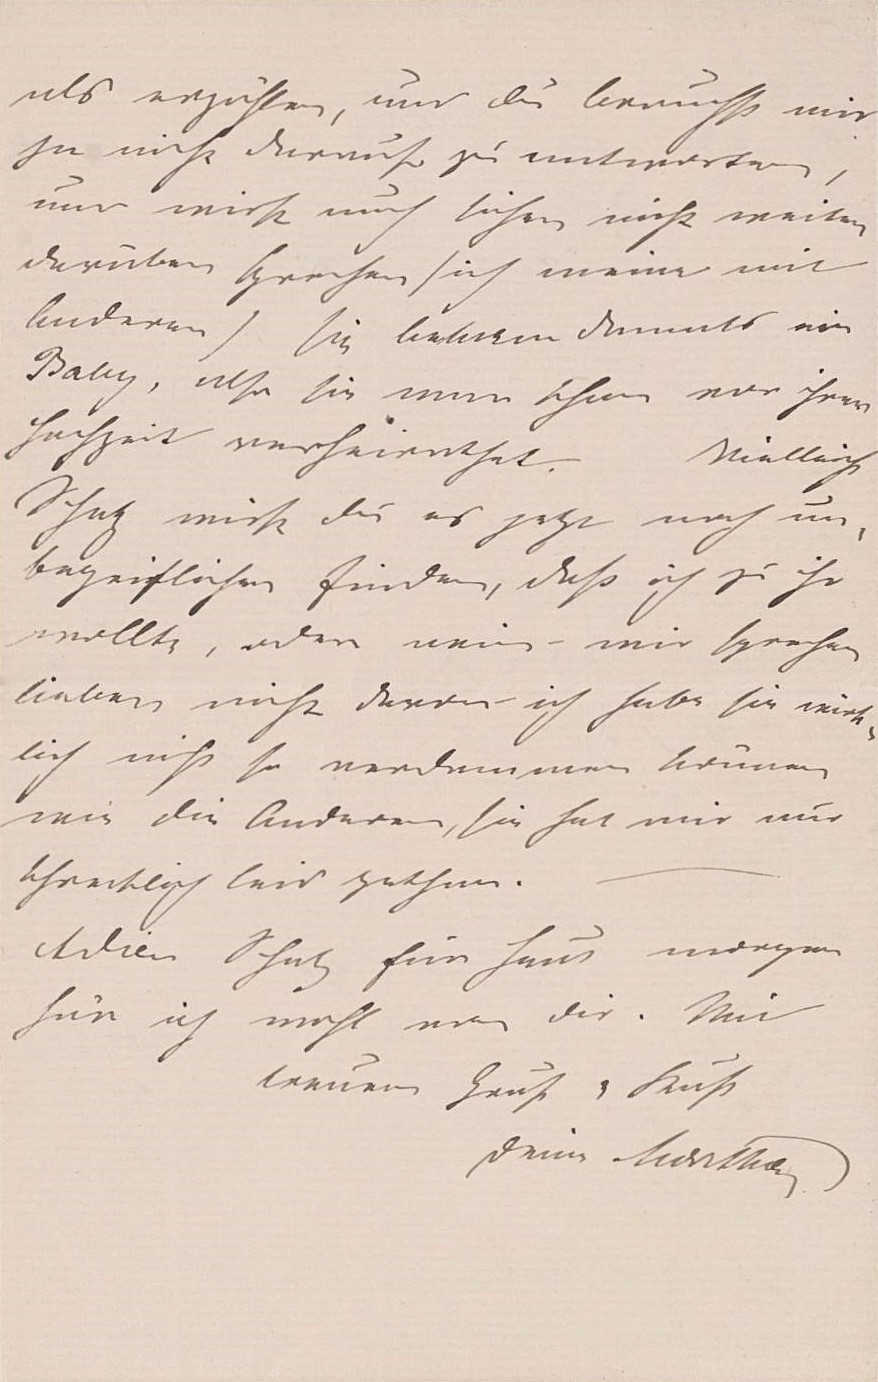 als erzählen, und Du brauchst mir
ja nicht darauf zu antworten,
und wirst auch sicher nicht weiter
darüber sprechen (ich meine mit
Anderen) sie bekam damals ein
Baby, also sie war schon vor ihrer
Hochzeit verheirathet. Vielleicht
Schatz wirst Du es jetzt noch un-
begreiflicher finden, daß ich zu ihr
wollte, oder nein – wir sprechen
lieber nicht davon – ich habe sie wirk-
lich nicht so verdammen können
wie die Anderen, sie hat mir nur
schrecklich leid gethan.
Adieu Schatz für heut morgen
hör ich wohl von Dir. Mit
treuem Gruß & Kuß
Deine Martha